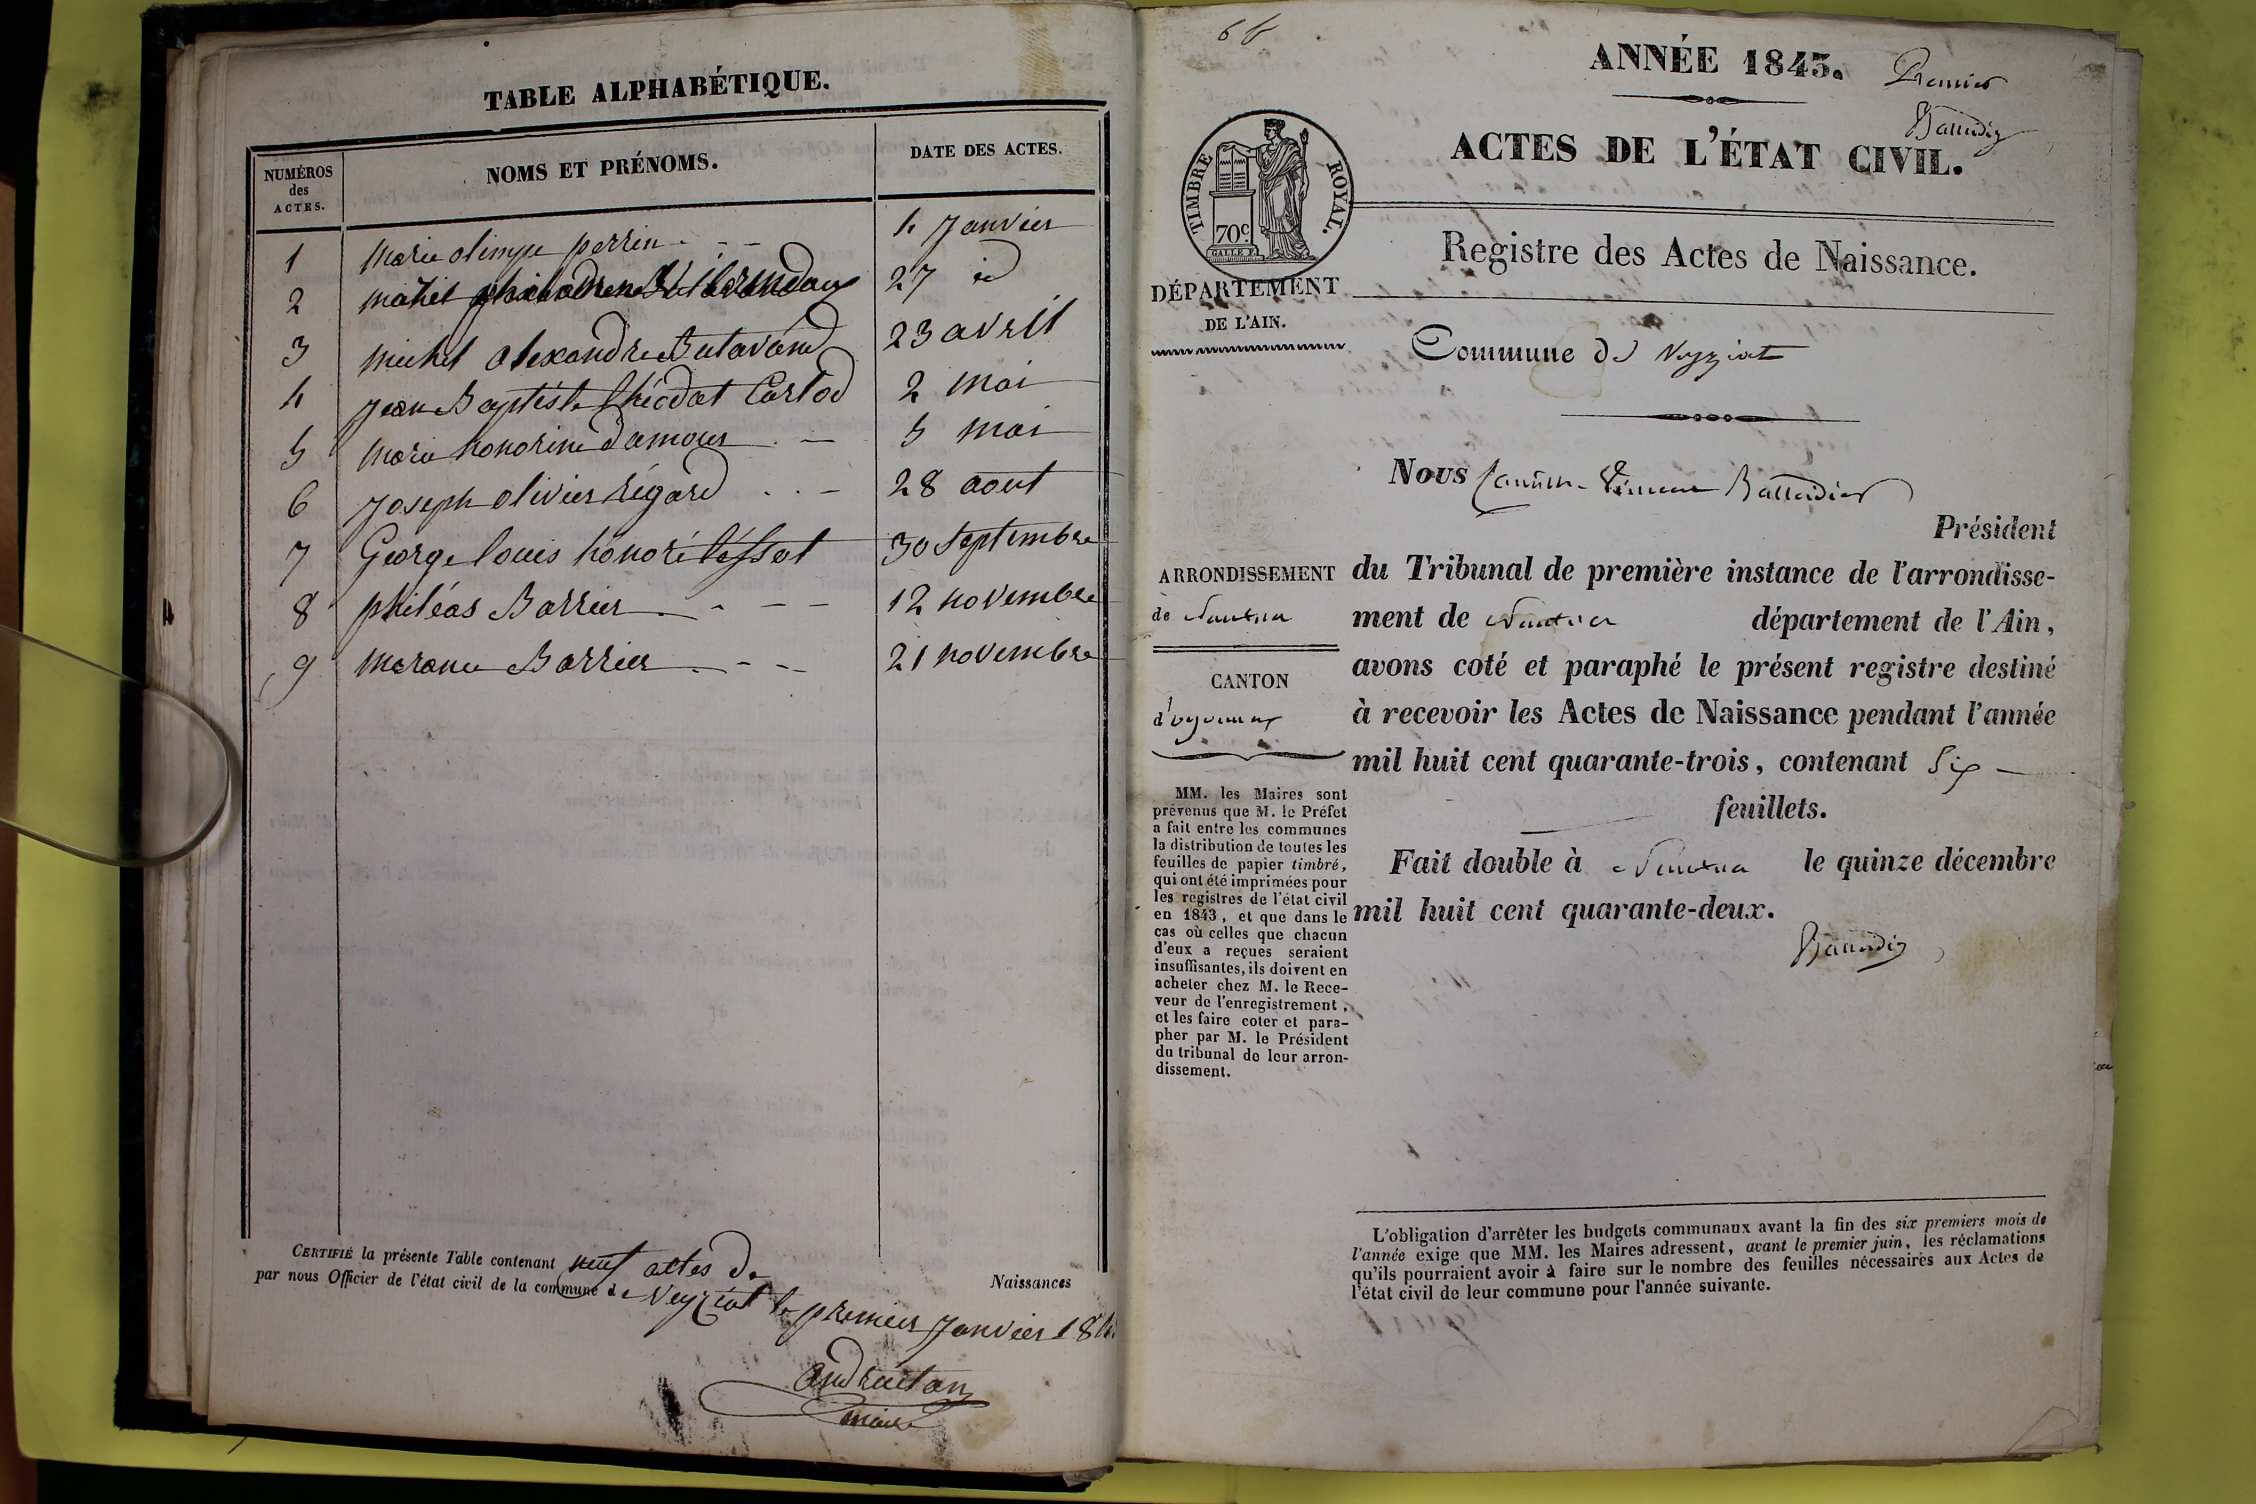 TABLE ALPHABÉTIQUE.
NUMÉROS
des
ACTES.
NOMS ET PRÉNOMS.
DATE DES ACTES.
1 Marie olimpe perrin 4 Janvier
2 michel 27 id
3 michel alexandre Butavand 23 avril
4 Jean Baptiste théodat Carlod 2 mai
5 marie honorine Damour 5 mai
6 Joseph olivier Régard 28 aout
7 George louis honoré 30 septembre
8 philéas Barrier 12 novembre
9 Barrier 21 novembre
CERTIFIÉ la présente Table contenant neuf actes de
Naissances
par nous Officier de l'état civil de la commune de Veyziat le premier Janvier 184
maire
66
ANNÉE 1843.
Premier
ACTES DE L'ÉTAT CIVIL.
TIMBRE ROYAL.
70c
Registre des Actes de Naissance.
DÉPARTEMENT
DE L'AIN.
Commune de Veyziat
Nous
Président
ARRONDISSEMENT
de Nantua
CANTON
d'oyonnax
du Tribunal de première instance de l'arrondisse-
ment de Nantua département de l'Ain,
avons coté et paraphé le présent registre destiné
à recevoir les Actes de Naissance pendant l'année
mil huit cent quarante-trois, contenant Six
feuillets.
Fait double à Nantua le quinze décembre
mil huit cent quarante-deux.
MM. les Maires sont
prévenus que M. le Préfet
a fait entre les communes
la distribution de toutes les
feuilles de papier timbré,
qui ont été imprimées pour
les registres de l'état civil
en 1843, et que dans le
cas où celles que chacun
d'eux a reçues seraient
insuffisantes, ils doivent en
acheter chez M. le Rece-
veur de l'enregistrement,
et les faire coter et para-
pher par M. le Président
du tribunal de leur arron-
dissement.
L'obligation d'arrêter les budgets communaux avant la fin des six premiers mois de
l'année exige que MM. les Maires adressent, avant le premier juin, les réclamations
qu'ils pourraient avoir à faire sur le nombre des feuilles nécessaires aux Actes de
l'état civil de leur commune pour l'année suivante.